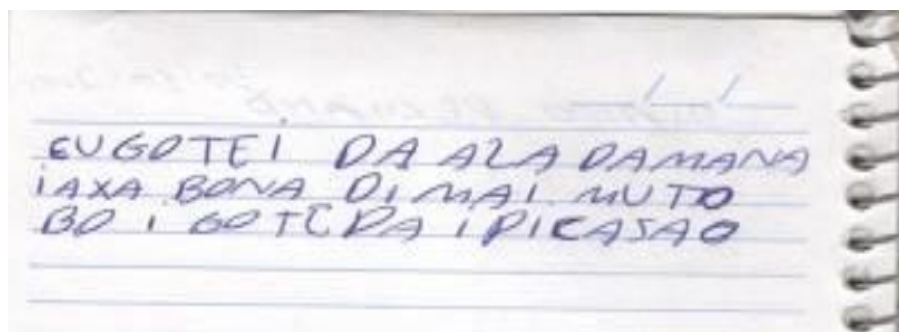 EU GOTEI DA ALA DAMANA
IAXA BONA DI MAI. MUTO
BO I GOTE DA IPICASAO